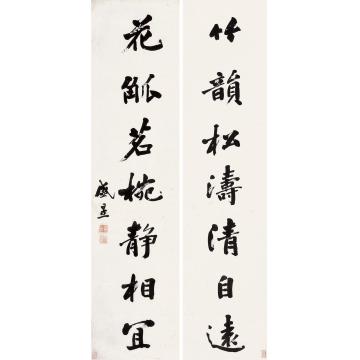 竹韻松濤清自遠
花觚茗椀静相宜
盛昱